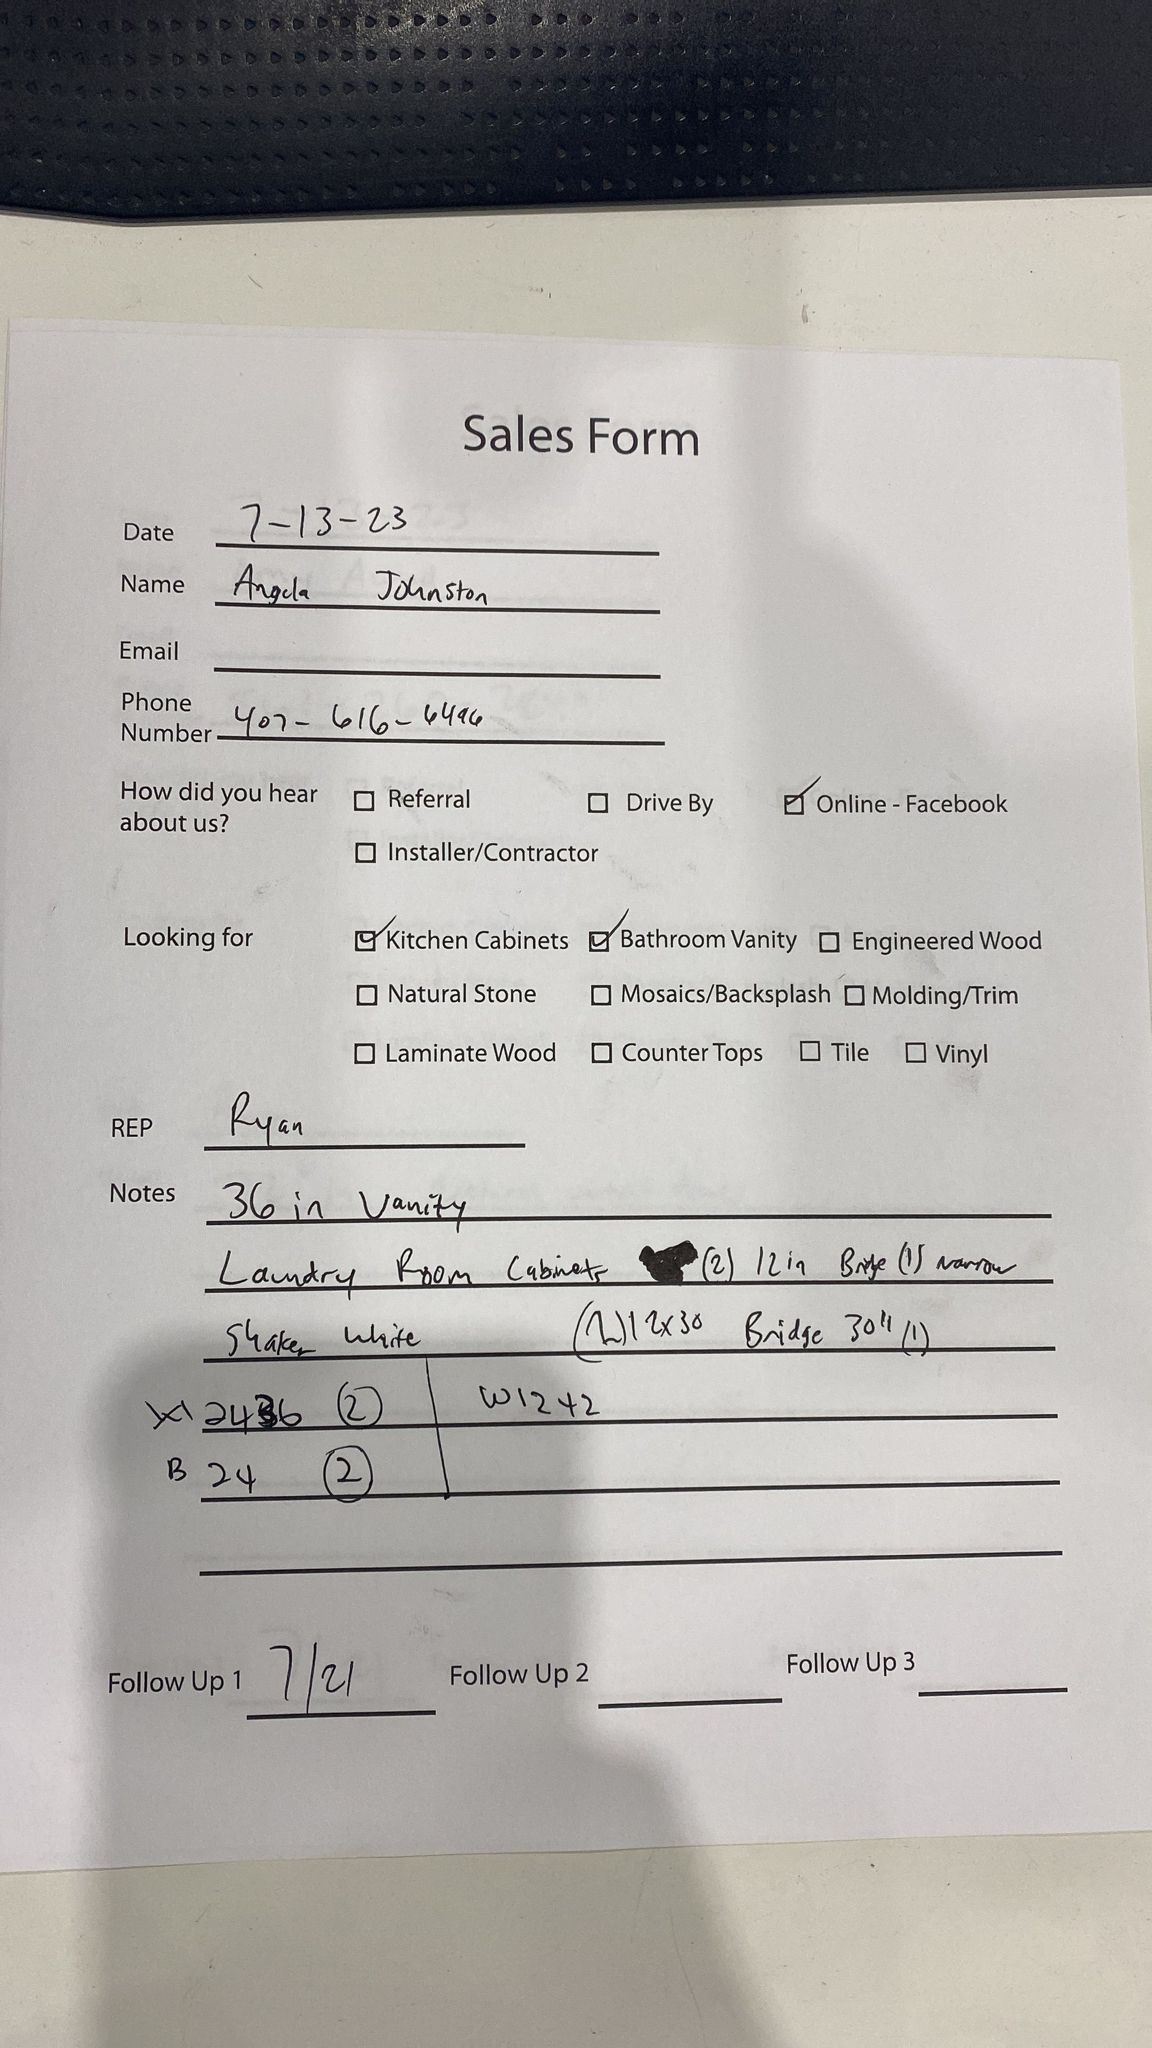 Sales Form
Date 7-13-23
Name Angela Johnston
Email
Phone
Number 407-616-6496
How did you hear
about us?
Referral Drive By Online - Facebook
Installer/Contractor
Looking for Kitchen Cabinets Bathroom Vanity Engineered Wood
Natural Stone Mosaics/Backsplash Molding/Trim
Laminate Wood Counter Tops Tile Vinyl
REP Ryan
Notes 36 in Vanity
Laundry Room Cabinets (2) 12in (1) Narrow
Shaker White (2) 12x30 Bridge 30" (1)
W 2436 (2) W1242
B 24 (2)
Follow Up 1 7/21 Follow Up 2 Follow Up 3